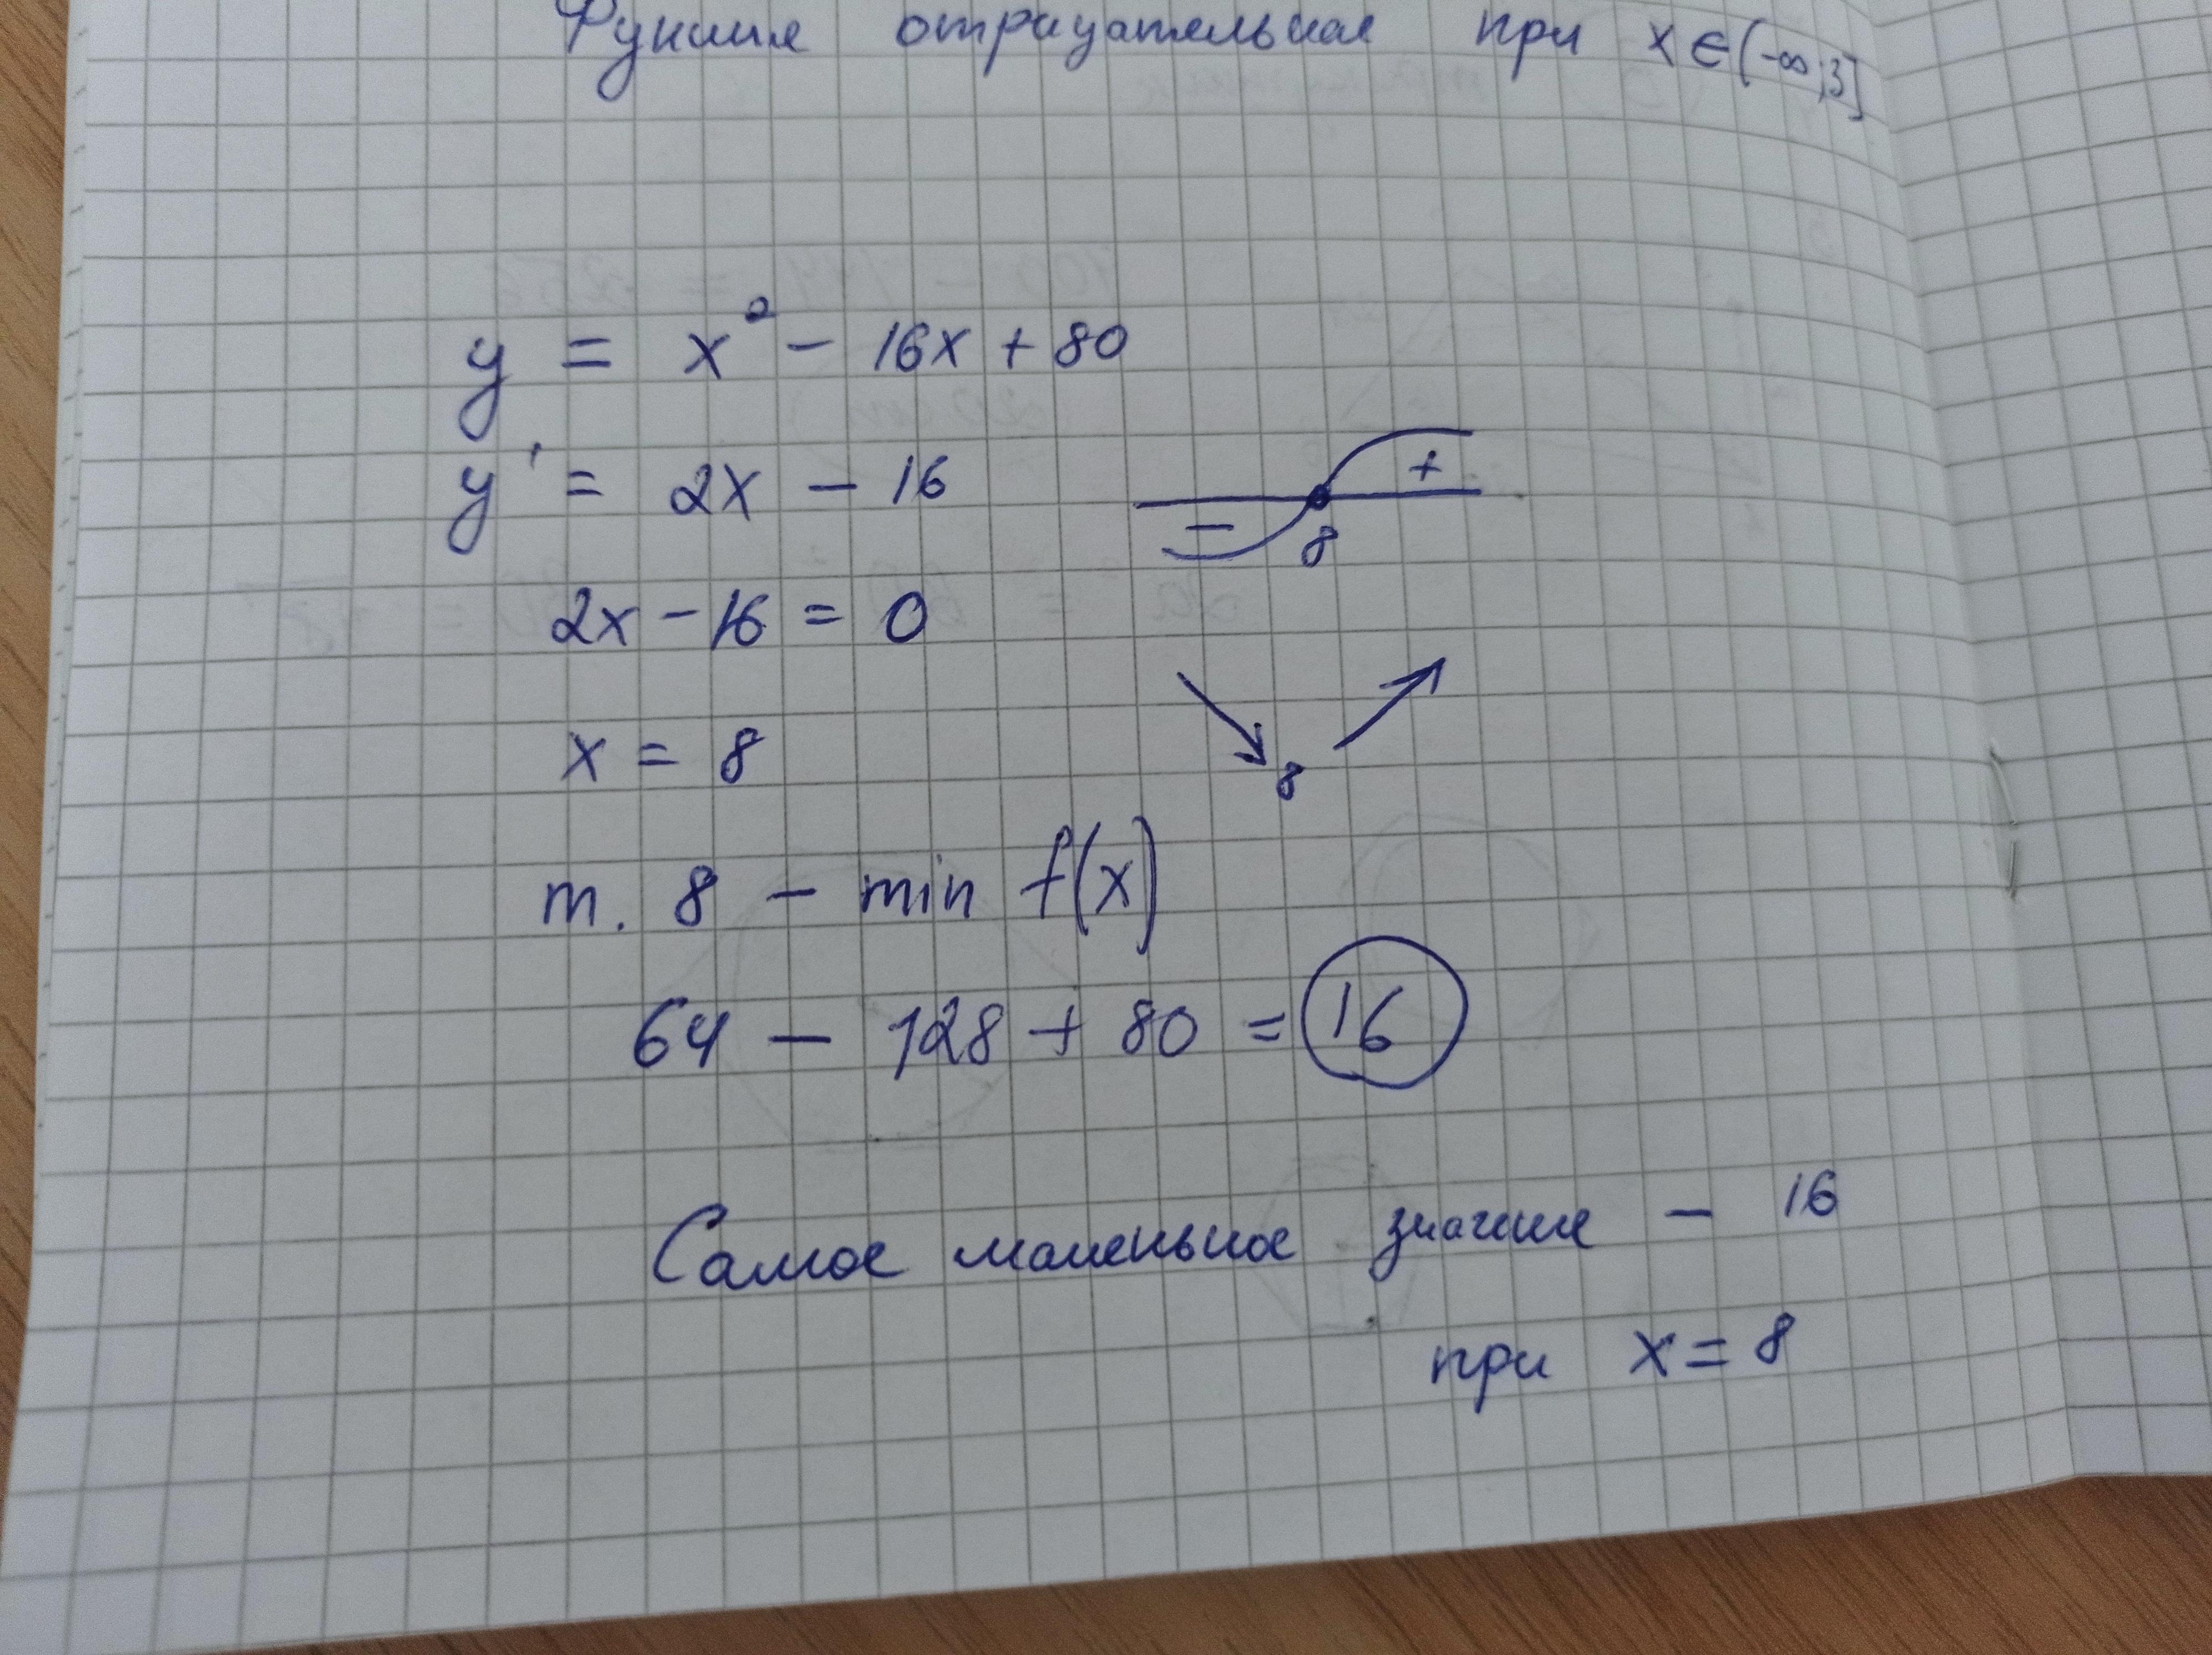 Функция отрицательная при x ∈ (-∞;3]
y = x² - 16x + 80
y' = 2x - 16
+
-
8
2x - 16 = 0
x = 8
8
т. 8 - min f(x)
64 - 128 + 80 = 16
Самое маленькое значение - 16
при x = 8